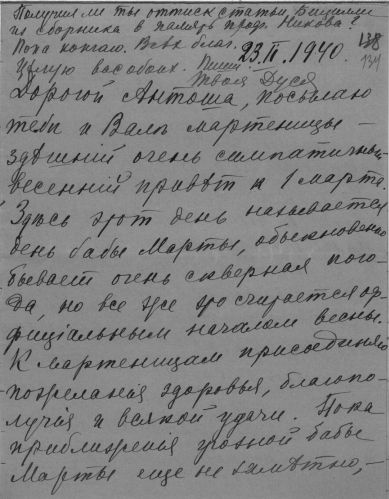 Получил ли ты оттиск статьи Бицилли
из сборника в память проф. Никова?
Пока кончаю. Всех благ.
Целую вас обоих. Пиши.
Твоя Дуся
23.II.1940.
138
134
Дорогой Антоша, посылаю
тебѣ и Валѣ мартеницы –
здѣшній очень симпатичный
весенній привѣт к 1 марта.
Здѣсь этот день называется
день бабы Марты, обыкновенно
бывает очень скверная пого-
да, но все же это считается оф-
фиціальным началом весны.
К мартеницам присоединяю
пожеланія здоровья, благопо-
лучія и всякой удачи. Пока
приближенія грозной бабы
Марты еще не замѣтно,–